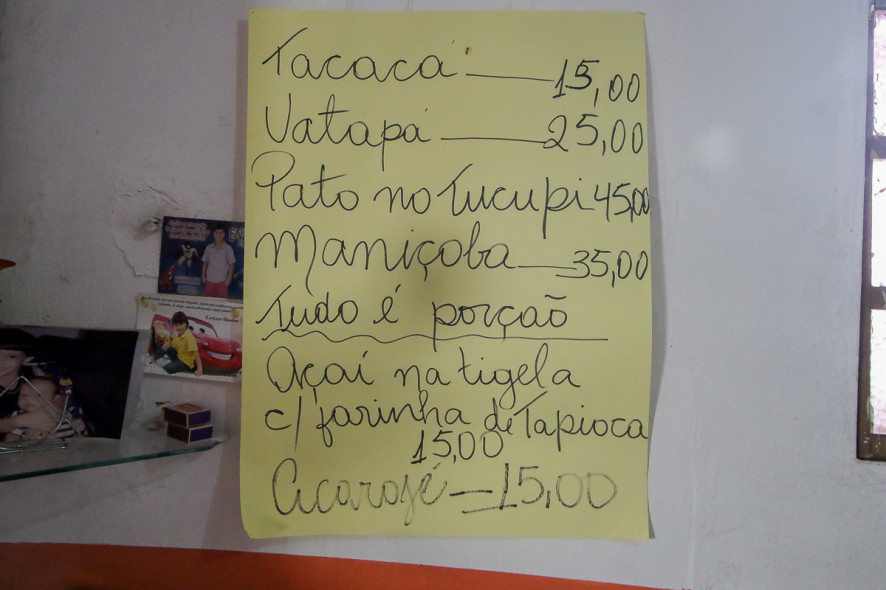 Tacacá 15,00
Vatapá 25,00
Pato no Tucupi 45,00
Maniçoba 35,00
Tudo é porção
Açaí na tigela
c/ farinha de Tapioca
15,00
Acarajé = 15,00